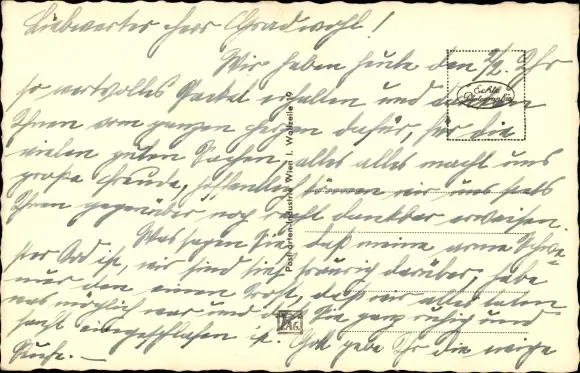 Liebwerter Herr Gradwohl!
Wir haben heute den 2/2. Ihr
so wertvolles Packet erhalten und danken
Ihnen vom ganzen Herzen dafür, für die
vielen guten Sachen, alles alles macht uns
große Freude, hoffentlich können wir uns stets
Ihnen gegenüber noch recht dankbar erweisen.
Was sagen Sie, daß meine arme Schwe-
ster tod ist, wir sind tief traurig darüber, habe
nur den einen Trost, daß wir alles taten
was möglich war und Sie ganz ruhig und
sanft eingeschlafen ist. Gott gebe Ihr die ewige
Ruhe. —
Echte
Photographie
Postkarten-Industrie Wien I. Wollzeile 19
P.A.G.